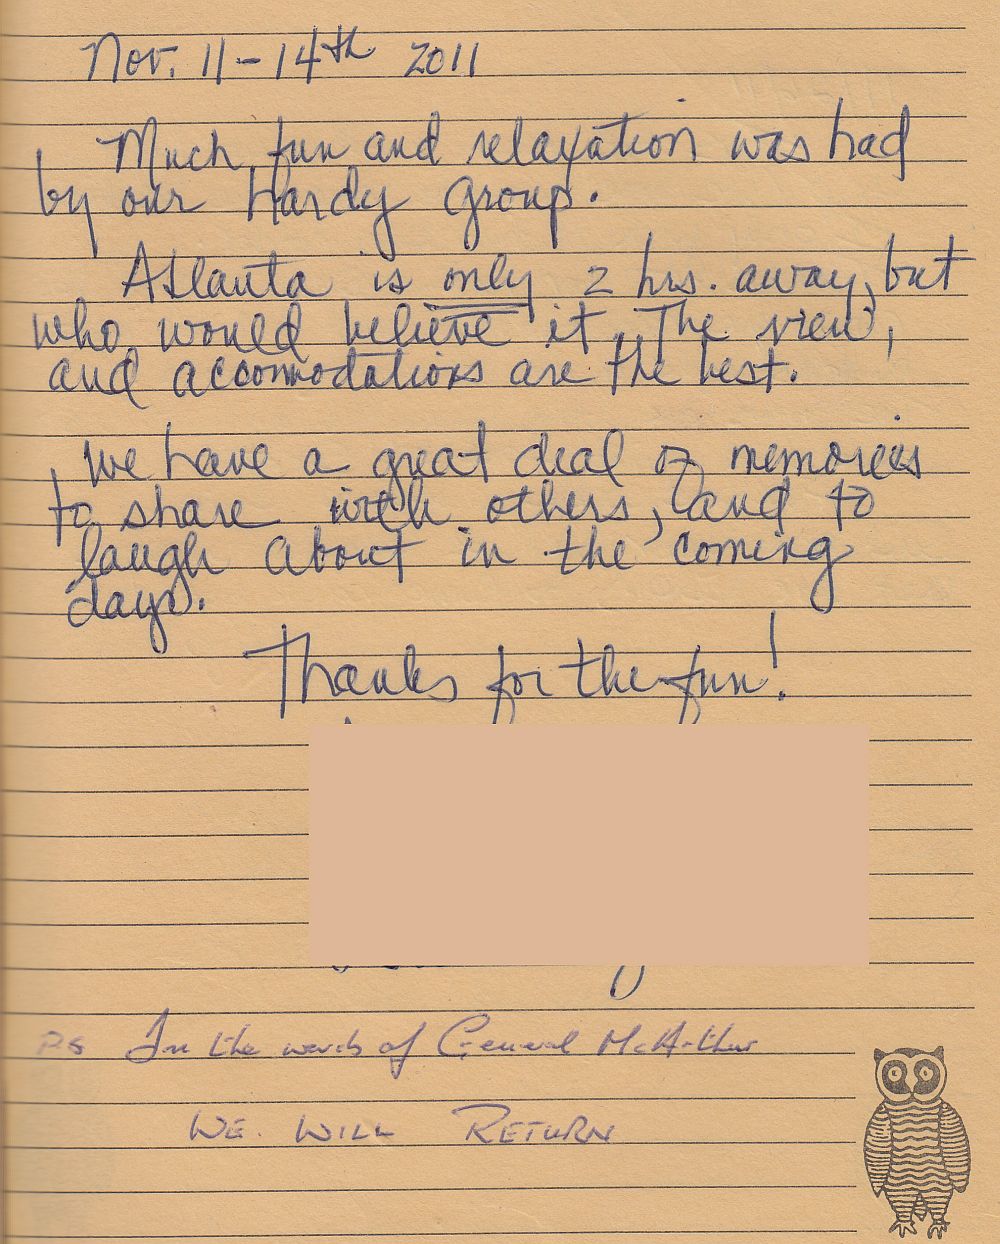 Nov. 11-14th 2011
Much fun and relaxation was had
by our hardy group.
Atlanta is only 2 hrs. away, but
who would believe it. The view,
and accomodations are the best.
We have a great deal of memories
to share with others, and to
laugh about in the coming
days.
Thanks for the fun!
P.S In the words of General McArthur
WE WILL RETURN